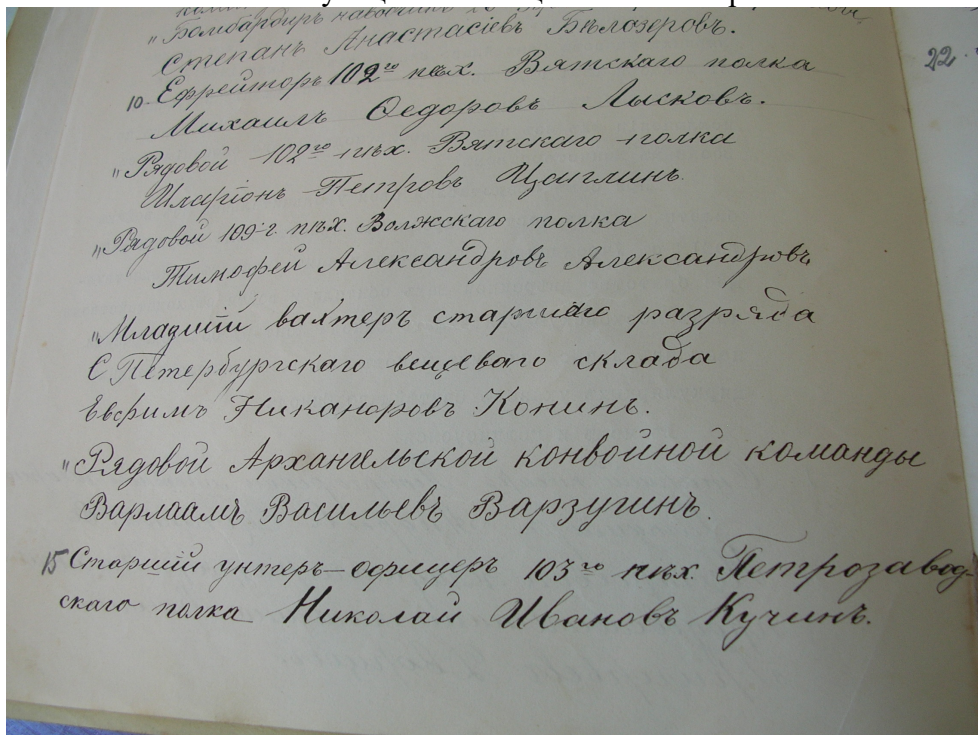 "Бомбардиръ наводчикъ
Степанъ Анастасіевъ Бѣлозеровъ.
10. Ефрейторъ 102го пѣх. Вятскаго полка
Михаилъ Ѳедоровъ Лысковъ.
22.
"Рядовой 102го пѣх. Вятскаго полка
Иларіонъ Петровъ Цыглинъ.
"Рядовой 109-г. пѣх. Волжскаго полка
Тимофей Александровъ Александровъ,
"Младшій вахтеръ старшаго разряда
С Петербургскаго вещеваго склада
Евфимъ Никаноровъ Конинъ.
"Рядовой Архангельской конвойной команды
Варлаамъ Васильевъ Варзугинъ.
15 Старшій унтеръ-офицеръ 103го пѣх. Петрозавод-
скаго полка Николай Ивановъ Кучинъ.